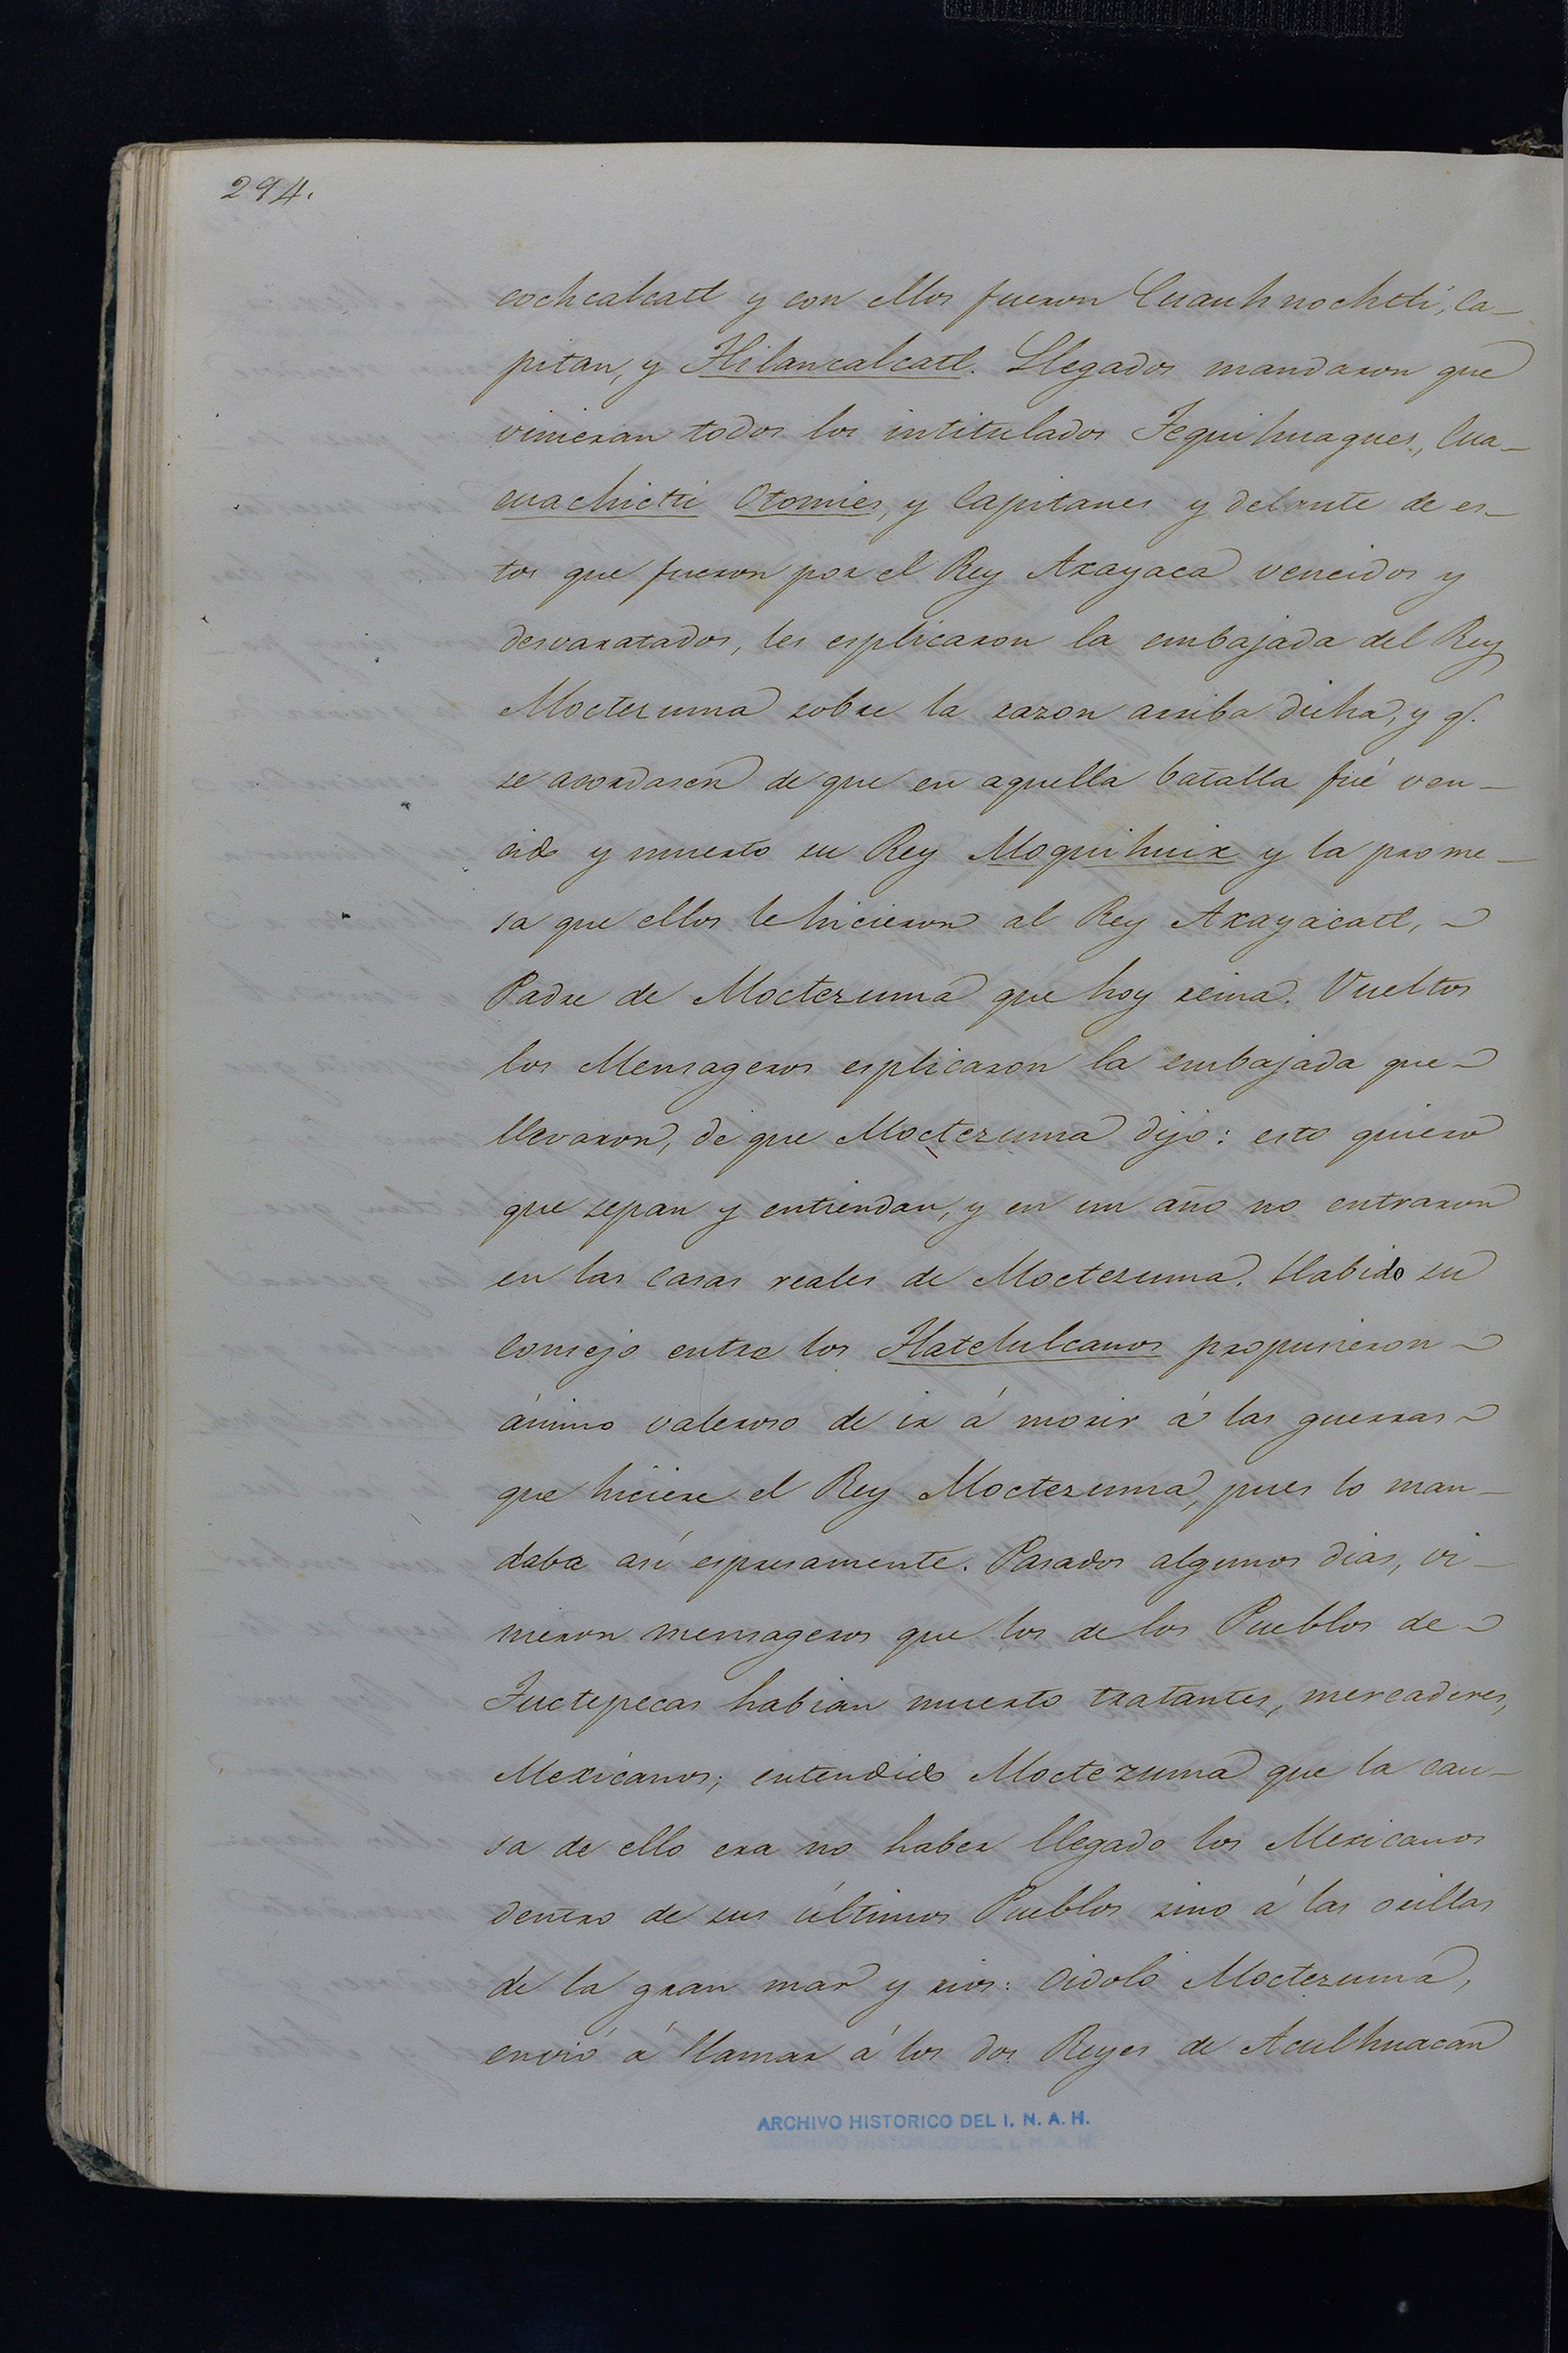 294.
cochcalcatl y con ellos fueron Cuauhnochtli, Ca-
pitan, y Tlilancalcatl. Llegados mandaron que
vinieran todos los intitulados Tequihuaques, Cua-
cuachictli Otomies, y Capitanes y delante de es-
tos que fueron por el Rey Axayaca vencidos y
desvaratados, les esplicaron la embajada del Rey
Moctezuma sobre la razon arriba dicha, y q.
se acordasen de que en aquella batalla fué ven-
cido y muerto su Rey Moquihuix y la prome-
sa que ellos le hicieron al Rey Axayacatl,
Padre de Moctezuma que hoy reina. Vueltos
los Mensageros esplicaron la embajada que
llevaron, de que Moctezuma dijo: esto quiero
que sepan y entiendan, y en un año no entraron
en las Casas reales de Moctezuma. Habido su
Consejo entre los Tlatelulcanos propusieron
ánimo valeroso de ir á morir á las guerras
que hiciere el Rey Moctezuma, pues lo man-
daba así espresamente. Pasados algunos dias, vi-
nieron mensageros que los de los Pueblos de
Tuctepecas habian muerto tratantes, mercaderes,
Mexicanos; entendido Moctezuma que la cau-
sa de ello era no haber llegado los Mexicanos
dentro de sus últimos Pueblos sino á las orillas
de la gran mar y rios: Oidolo Moctezuma,
envió á llamar á los dos Reyes de Aculhuacan
ARCHIVO HISTORICO DEL I. N. A. H.